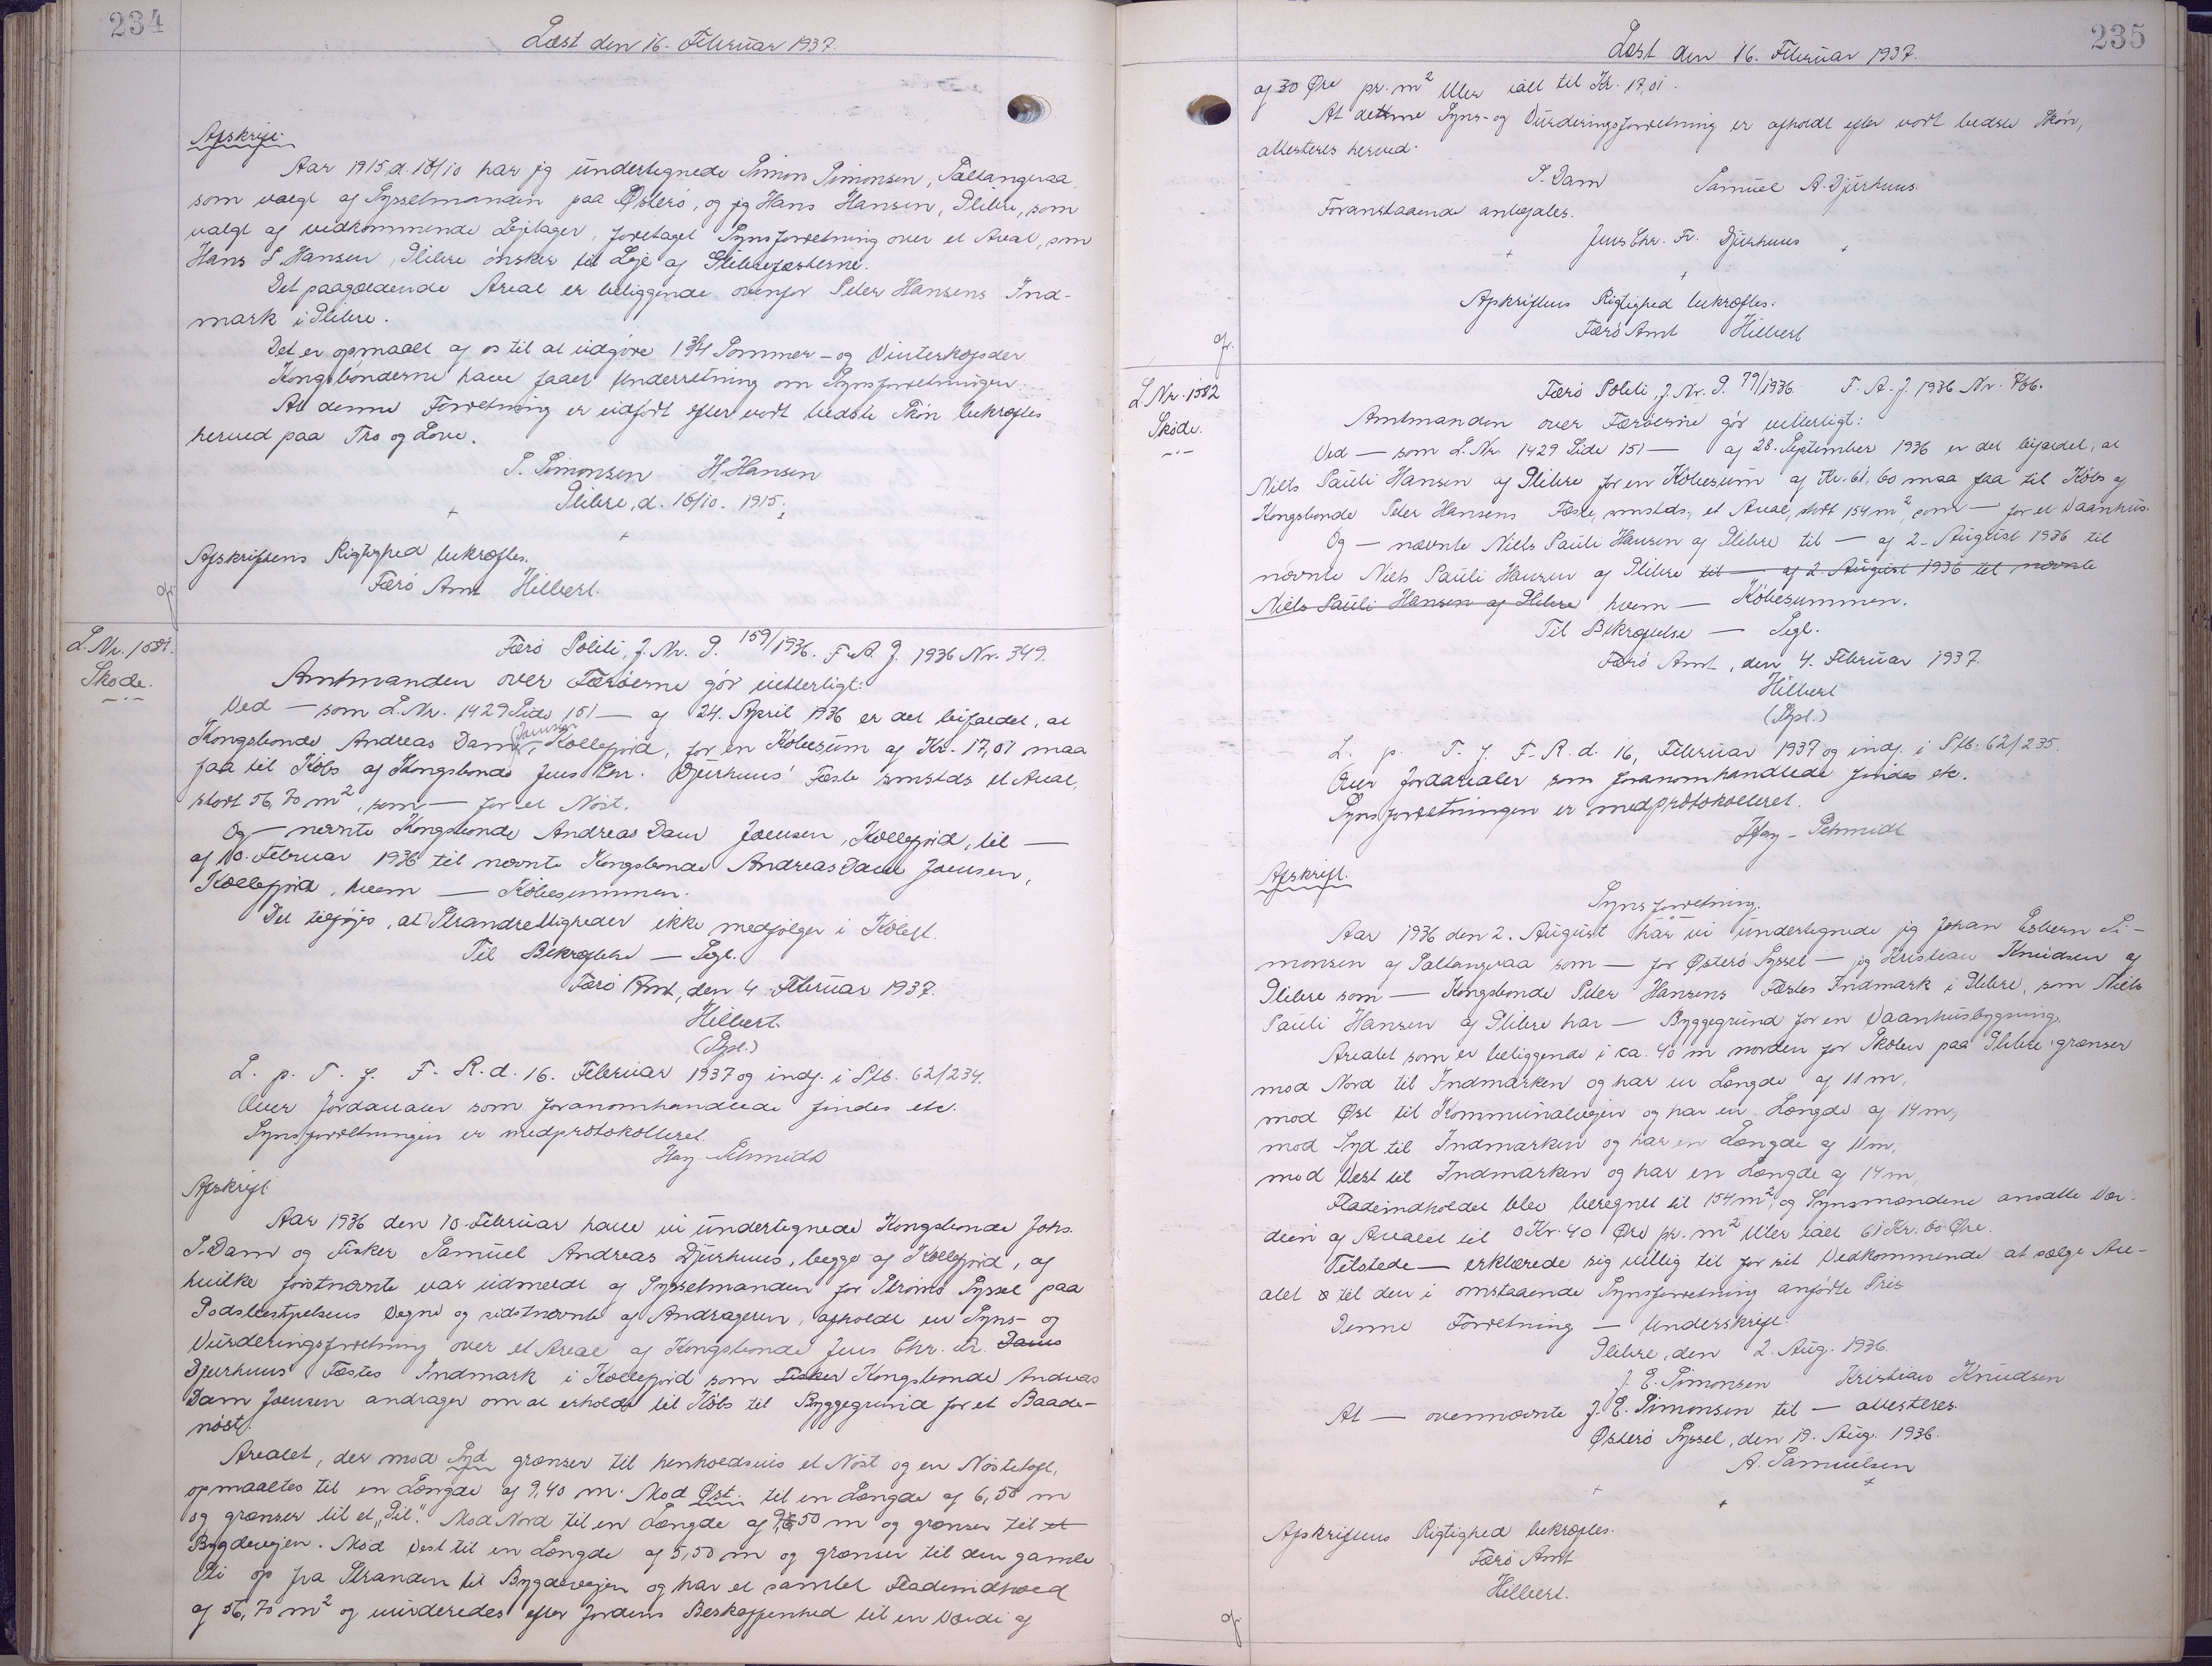 234
Læst den 16. Februar 1937.
Afskrift.
Aar 1915, d. 16/10 har jeg undertegnede Simon Simonsen, Saltangeraa
som valgt af Sysselmanden paa Østerø, og jeg Hans Hansen, Glibre, som
valgt af vedkommende Lejetager, foretaget Synsforretning over et Areal, som
Hans S Hansen, Glibre ønsker til Leje af Glibrefæsterne.
Det paagældende Areal er beliggende ovenfor Peter Hansens Ind-
mark i Glibre.
Det er opmaalt af os til at udgøre 1 3/4 Sommer- og Vinterkøsder.
Kongsbønderne have faaet Underretning om Synsforretningen.
At denne Forretning er udført efter vort bedste Skøn bekræftes
herved paa Tro og Love.
S. Simonsen H. Hansen
Glibre, d. 16/10. 1915.
Afskriftens Rigtighed bekræftes.
Færø Amt Hilbert.
L.Nr. 1581.
Skøde.
Færø Politi, J.Nr. P. 159/1936. F.A.J. 1936 Nr. 349.
Amtmanden over Færøerne gør vitterligt:
Ved — som L.Nr. 1429 Side 151 — af 24. April 1936 er det bifaldet, at
Kongsbonde Andreas Dam Joensen, Kollefjord, for en Købesum af Kr. 17,01 maa
faa til Købs af Kongsbonde Jens Chr. Djurhuus' Fæste smstds et Areal,
stort 56,70 m², som — for et Nøst.
Og — nævnte Kongsbonde Andreas Dam Joensen, Kollefjord, til —
af 10. Februar 1936 til nævnte Kongsbonde Andreas Dam Joensen,
Kollefjord, hvem — Købesummen.
Det tilføjes, at Strandrettigheder ikke medfølger i Købet.
Til Bekræftelse — Segl.
Færø Amt, den 4. Februar 1937.
Hilbert.
(Sgl.)
L. p. T. f. F. R. d. 16. Februar 1937 og indf. i Ptb. 62/234.
Over Jordarealer som foranomhandlede findes etc.
Synsforretningen er medprotokolleret.
Hay-Schmidt
Afskrift
Aar 1936 den 10. Februar have vi undertegnede Kongsbonde Johs.
P. Dam og Fisker Samuel Andreas Djurhuus, begge af Kollefjord, af
hvilke førstnævnte var udmeldt af Sysselmanden for Strømø Syssel paa
Godsbestyrelsens Vegne og sidstnævnte af Andrageren, afholdt en Syns- og
Vurderingsforretning over et Areal af Kongsbonde Jens Chr. Fr. Dams
Djurhuus' Fæstes Indmark i Kollefjord som Fisker Kongsbonde Andreas
Dam Joensen andrager om at erholde til Købs til Byggegrund for et Baade-
nøst.
Arealet, der mod Syd grænser til henholdsvis et Nøst og en Nøstetoft,
opmaaltes til en Længde af 9,40 m. Mod Øst til en Længde af 6,50 m
og grænser til et „Sil". Mod Nord til en Længde af 9,50 m og grænser til et
Bygdevejen. Mod Vest til en Længde af 5,50 m og grænser til den gamle
Sti op fra Stranden til Bygdevejen og har et samlet Fladeindhold
af 56,70 m² og vurderedes efter Jordens Beskaffenhed til en Værdi af
235
Læst den 16. Februar 1937.
af 30 Øre pr. m² eller ialt til Kr. 17,01.
At denne Syns- og Vurderingsforretning er afholdt efter vort bedste Skøn,
attesteres herved.
P. Dam Samuel A. Djurhuus.
Foranstaaende anbefales.
Jens Chr. Fr. Djurhuus
Afskriftens Rigtighed bekræftes.
Færø Amt Hilbert
L Nr. 1582
Skøde.
Færø Politi, J. Nr. P. 79/1936. F.A.J. 1936 Nr. 706.
Amtmanden over Færøerne gør vitterligt:
Ved — som L.Nr. 1429 Side 151 — af 28. September 1936 er det bifaldet, at
Niels Pauli Hansen af Glibre for en Købesum af Kr. 61,60 maa faa til Købs af
Kongsbonde Peter Hansens Fæste, smstds., et Areal, stort 154 m², som — for et Vaanhus.
Og — nævnte Niels Pauli Hansen af Glibre til — af 2. August 1936 til
nævnte Niels Pauli Hansen af Glibre til — af 2. August 1936 til nævnte
Niels Pauli Hansen af Glibre hvem — Købesummen.
Til Bekræftelse — Segl.
Færø Amt, den 4. Februar 1937.
Hilbert
(Sgl.)
L. p. T. f. F. R. d. 16. Februar 1937 og indf. i Ptb. 62/235.
Over Jordarealer som foranomhandlede findes etc.
Synsforretningen er medprotokolleret.
Hay-Schmidt
Afskrift.
Synsforretning.
Aar 1936 den 2. August har vi undertegnede jeg Johan Esbern Si-
monsen af Saltangeraa som — for Østerø Syssel — jeg Kristian Knudsen af
Glibre som — Kongsbonde Peter Hansens Fæstes Indmark i Glibre, som Niels
Pauli Hansen af Glibre har — Byggegrund for en Vaanhusbygning.
Arealet som er beliggende i ca. 40 m norden for Skolen paa Glibre grænser
mod Nord til Indmarken og har en Længde af 11 m,
mod Øst til Kommunalvejen og har en Længde af 14 m,
mod Syd til Indmarken og har en Længde af 11 m,
mod Vest til Indmarken og har en Længde af 14 m,
Fladeindholdet blev beregnet til 154 m², og Synsmændene ansatte Vær-
dien af Arealet til 0 Kr. 40 Øre pr. m² eller ialt 61 Kr. 60 Øre.
Tilstede — erklærede sig villig til for sit Vedkommende at sælge Are-
alet til den i omstaaende Synsforretning anførte Pris
Denne Forretning — Underskrift.
Glibre, den 2. Aug. 1936.
J. E. Simonsen Kristian Knudsen
At — ovennævnte J. E. Simonsen til — attesteres.
Østerø Syssel, den 19. Aug. 1936.
A. Samuelsen
Afskriftens Rigtighed bekræftes.
Færø Amt
Hilbert.